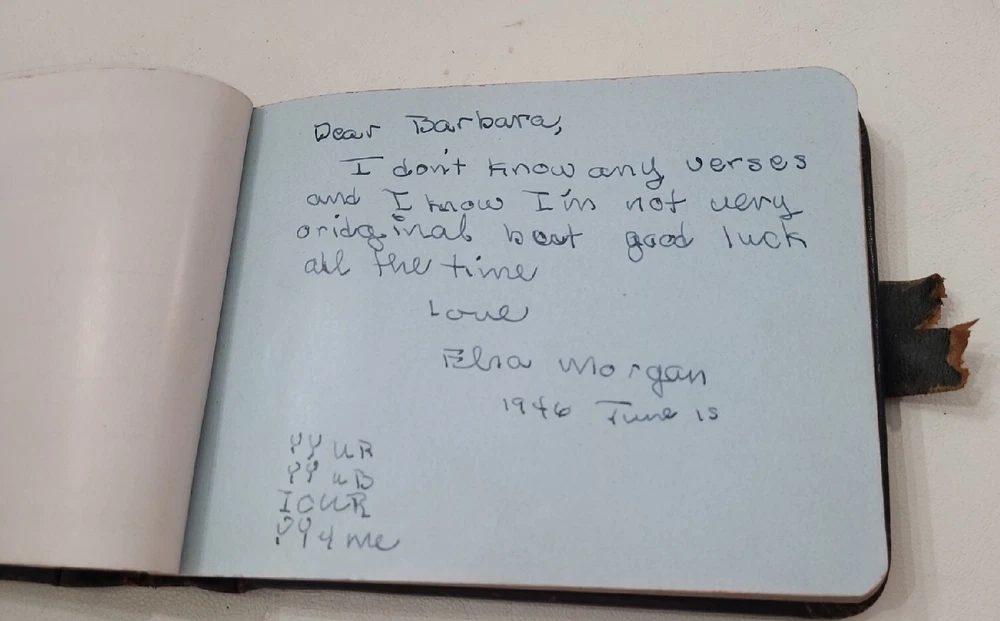 Dear Barbara,
I don't know any verses
and I know I'm not very
oridginal bout good luck
all the time
Love
Elsa Morgan
1946 June 15
YY UR
YY UB
ICUR
YY 4 me